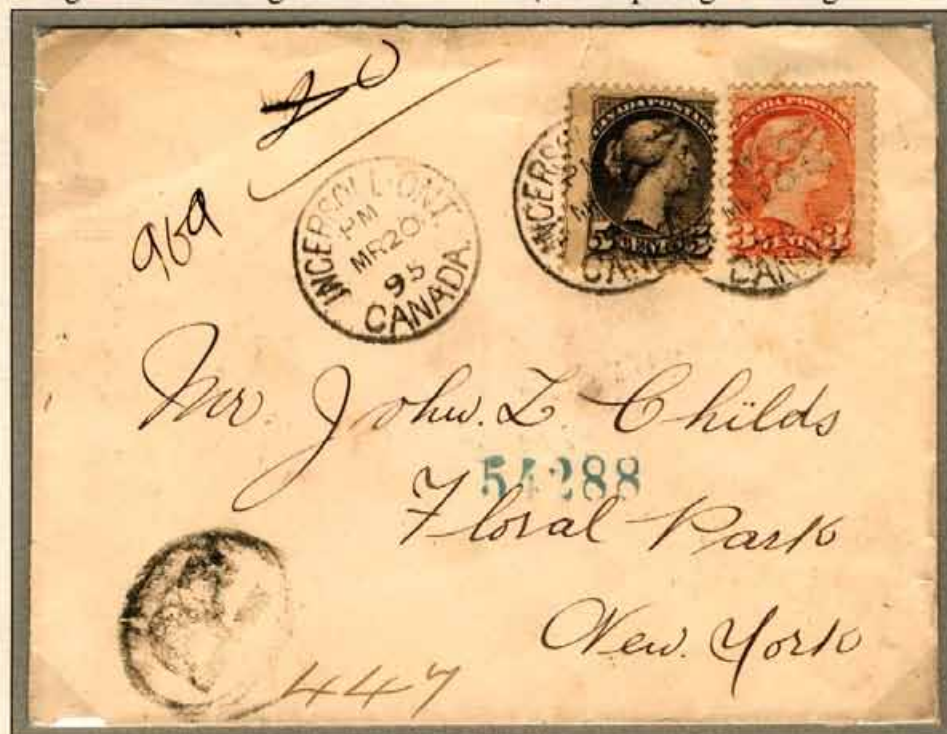 969
INGERSOLL. ONT.
PM
MR 20
95
CANADA
CANADA POSTAGE
5 CENTS 5
CANADA POSTAGE
3 CENTS 3
Mr. John. L. Childs
54288
Floral Park
New. York
447